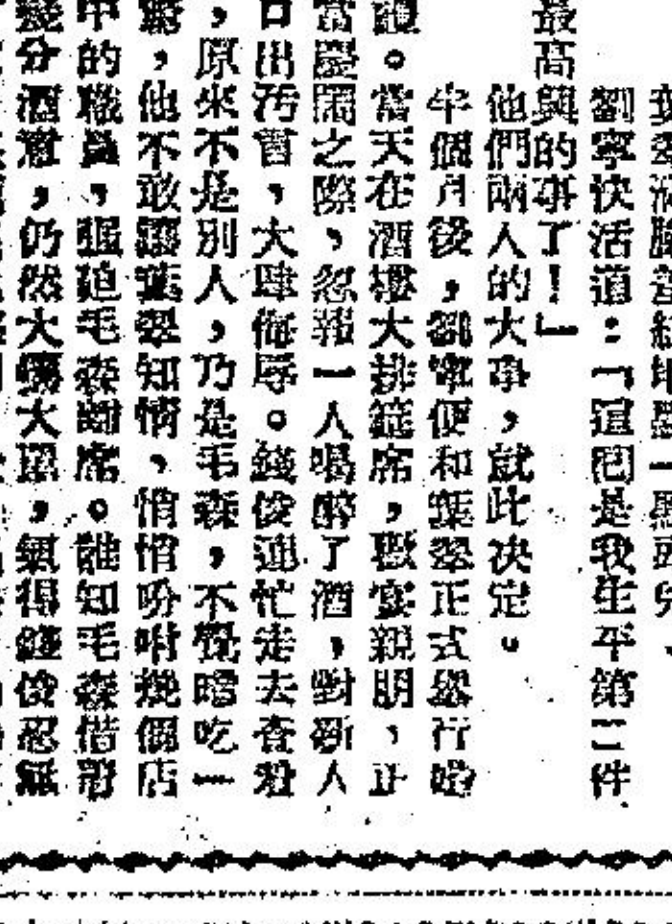 劉寧快活道：「這囘是我生平第二件
最高興的事了！」
他們兩人的大事，就此決定。
半個月後，劉寧便和葉翠正式舉行婚
禮。當天在酒樓大排筵席，歡宴親朋，正
當慶鬧之際，忽報一人喝醉了酒，對新人
口出污言，大肆侮辱。錢俊連忙走去查看
，原來不是別人，乃是毛森，不覺暗吃一
驚，他不敢讓葉翠知情，悄悄吩咐幾個店
中的職員，強迫毛森離席。誰知毛森借着
幾分酒意，仍然大嚷大罵，氣得錢俊忍無